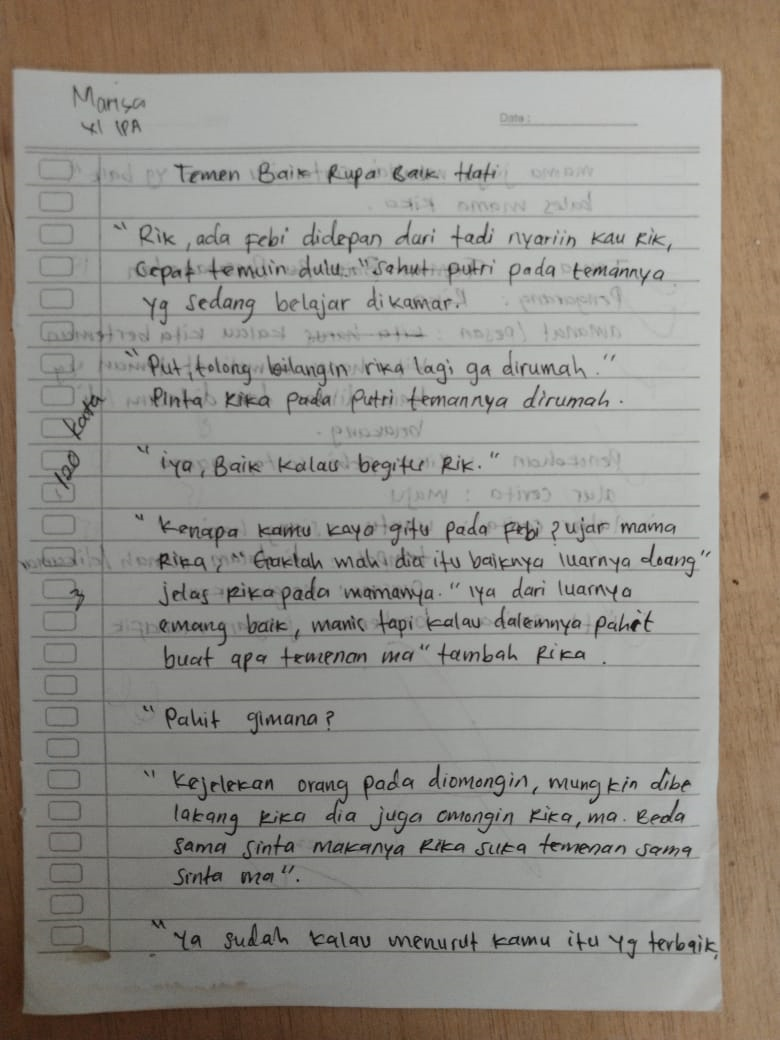 Marisa
XI IPA
Date :
Temen Baik Rupa Baik Hati
" Rik, ada Febi didepan dari tadi nyariin kau Rik,
cepat temuin dulu. "sahut putri pada temannya
yg sedang belajar dikamar.
"Put, tolong bilangin rika lagi ga dirumah."
Pinta Rika pada Putri temannya dirumah.
120 kata
" iya, Baik kalau begitu Rik."
" Kenapa kamu kaya gitu pada Febi ? ujar mama
Rika, " Gaklah mah dia itu baiknya luarnya doang"
jelas Rika pada mamanya. " iya dari luarnya
emang baik, manis tapi kalau dalemnya pahit
buat apa temenan ma" tambah Rika .
" Pahit gimana?
" Kejelekan orang pada diomongin, mungkin dibe
lakang Rika dia juga omongin Rika, ma. Beda
sama sinta makanya Rika suka temenan sama
sinta ma".
" Ya sudah kalau menurut kamu itu yg terbaik,